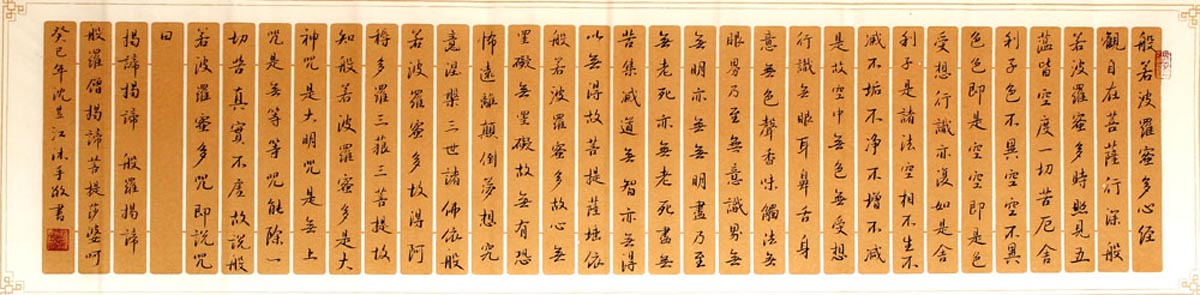 般若波羅蜜多心經
觀自在菩薩行深般
若波羅蜜多時照見五
蘊皆空度一切苦厄舍
利子色不異空空不異
色色即是空空即是色
受想行識亦復如是舍
利子是諸法空相不生不
滅不垢不净不增不減
是故空中無色無受想
行識無眼耳鼻舌身
意無色聲香味觸法無
眼界乃至無意識界無
無明亦無無明盡乃至
無老死亦無老死盡無
苦集滅道無智亦無得
以無得故菩提薩埵依
般若波羅蜜多故心無
罣礙無罣礙故無有恐
怖遠離顛倒夢想究
竟涅槃三世諸佛依般
若波羅蜜多故得阿
耨多羅三藐三菩提故
知般若波羅蜜多是大
神咒是大明咒是無上
咒是無等等咒能除一
切苦真實不虛故說般
若波羅蜜多咒即說咒
曰
揭諦揭諦 般羅揭諦
般羅僧揭諦菩提莎婆呵
癸巳年沈江沐手敬書